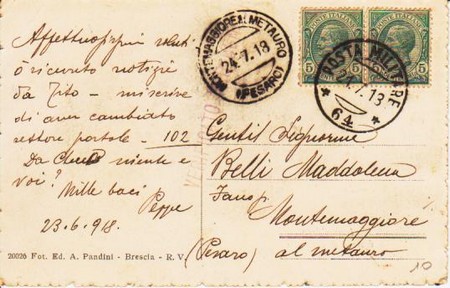 Affettuosissimi saluti
ò ricevuto notizie
da Tito – mi scrive
di aver cambiato
settore postale – 102
Da niente e
voi? Mille baci
Peppe
23.6.918.
20026 Fot. Ed. A. Pandini - Brescia - R. V.
MONTEMAGGIORE AL METAURO
24.7.18
(PESARO)
POSTE ITALIANE
5
POSTE ITALIANE
5
POSTA MILITARE
7.18
* 64 *
Gentil Signorina
Belli Maddalena
Montemaggiore
(Pesaro) al metauro
10